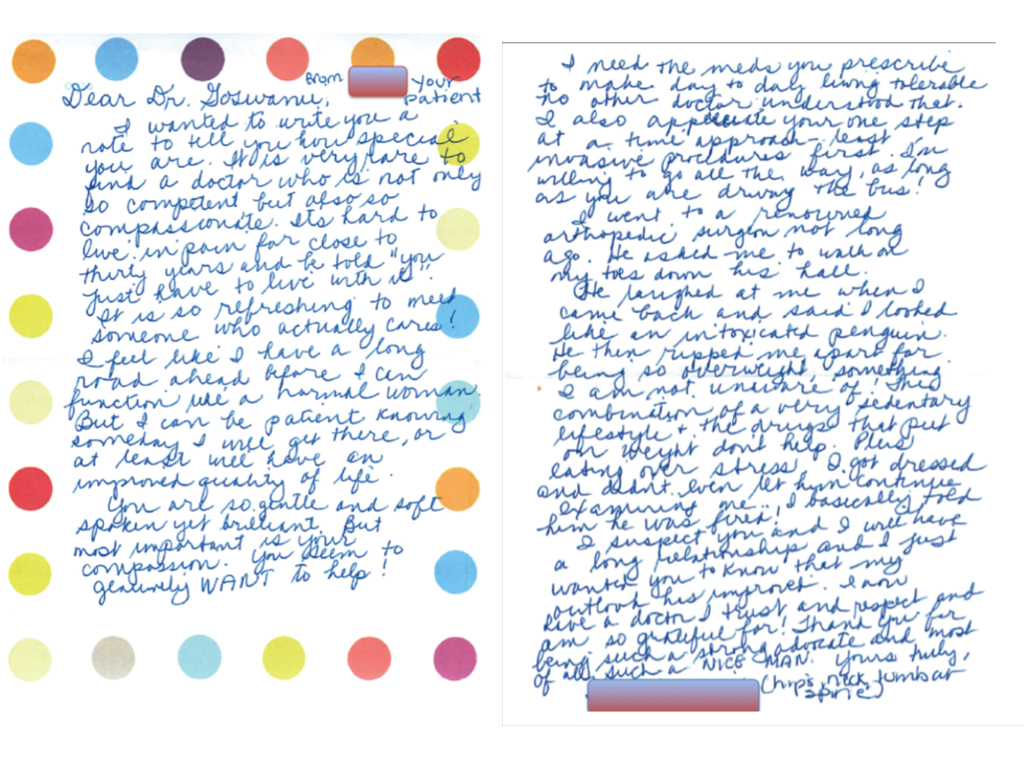 From
your
Dear Dr. Goswami,
patient
I wanted to write you a
note to tell you how special
you are. It is very rare to
find a doctor who is not only
so competent but also so
compassionate. Its hard to
live in pain for close to
thirty years and be told "you
just have to live with it".
It is so refreshing to meet
someone who actually cares!
I feel like I have a long
road ahead before I can
function like a normal woman.
But I can be patient knowing
someday I will get there, or
at least will have an
improved quality of life.
You are so gentle and soft
spoken yet brilliant. But
most important is your
compassion. You seem to
genuinely WANT to help!
I need the meds you prescribe
to make day to day living tolerable
no other doctor understood that.
I also appreciate your one step
at a time approach - least
invasive procedures first. I'm
willing to go all the way, as long
as you are driving the bus!
I went to a renowned
orthopedic surgeon not long
ago. He asked me to walk on
my toes down his hall.
He laughed at me when I
came back and said I looked
like an intoxicated penguin.
He then ripped me apart for
being so overweight, something
I am not unaware of! The
combination of a very sedentary
lifestyle + the drugs that put
on weight don't help. Plus
eating over stress. I got dressed
and didn't even let him continue
examining me.., I basically told
him he was fired!
I suspect you and I will have
a long relationship and I just
wanted you to know that my
outlook has improved. I now
have a doctor I trust and respect and
am so grateful for! Thank you for
being such a strong advocate and most
of all such a NICE MAN. Yours truly,
(hips, neck, lumbar
spine)